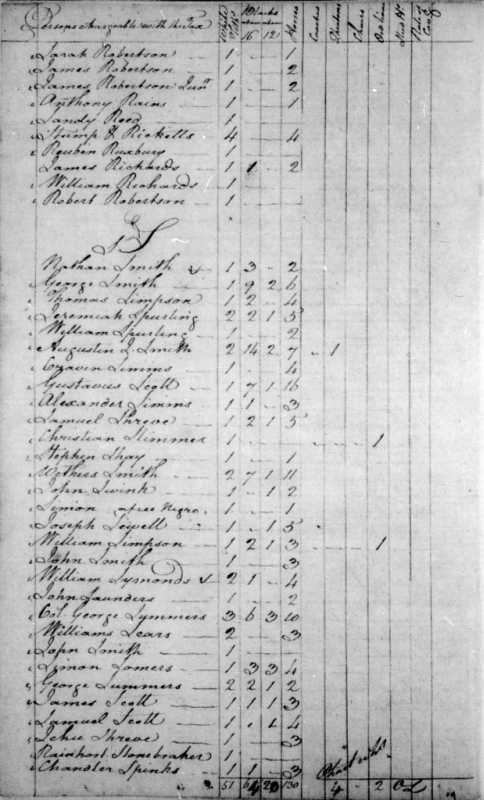 Persons Chargeable with the Tax White Blacks 16 12 Horses
Sarah Robertson 1 - - 1
James Robertson 1 - - 2
James Robertson Junr 1 - - 2
Anthony Rains 1 - - 1
Sandy Reed 1
Stump & Ricketts 4 - - 4
Reuben Roxbury 1
James Richards 1 1 - 2
William Richards 1
Robert Robertson 1 - - -
S
Nathan Smith 1 3 - 2
George Smith 1 9 2 6
Thomas Simpson 1 2 - 4
Jeremiah Spurling 2 2 1 5
William Spurling 1 - - 2
Augustin J Smith 2 14 2 7 - 1
Cravin Simms 1 - - 4
Gustavus Scott 1 7 1 16
Alexander Simms 1 1 - 3
Samuel Shreve 1 2 1 5
Christian Slimmer 1 - - - - - - 1
Stephen Shay 1 - - 1
Withers Smith 2 7 1 11
John Swink 1 - 1 2
Simon a free Negro 1 - - 1
Joseph Sewell 1 - 1 5
William Simpson 1 2 1 3 - - - 1
John Smith 1 - - 3
William Symonds 2 1 - 4
John Saunders 1 - - 2
Col. George Summers 3 6 3 10
Williams Sears 2 - - 3
John Smith 1
Simon Somers 1 3 3 4
George Summers 2 2 1 2
James Scott 1 1 1 3
Samuel Scott 1 1 4
Jehu Shreve 1 - - 3
Rainhart Stonebraker 1
Chandler Spinks 1 1 - 3
51 130 4 - 2